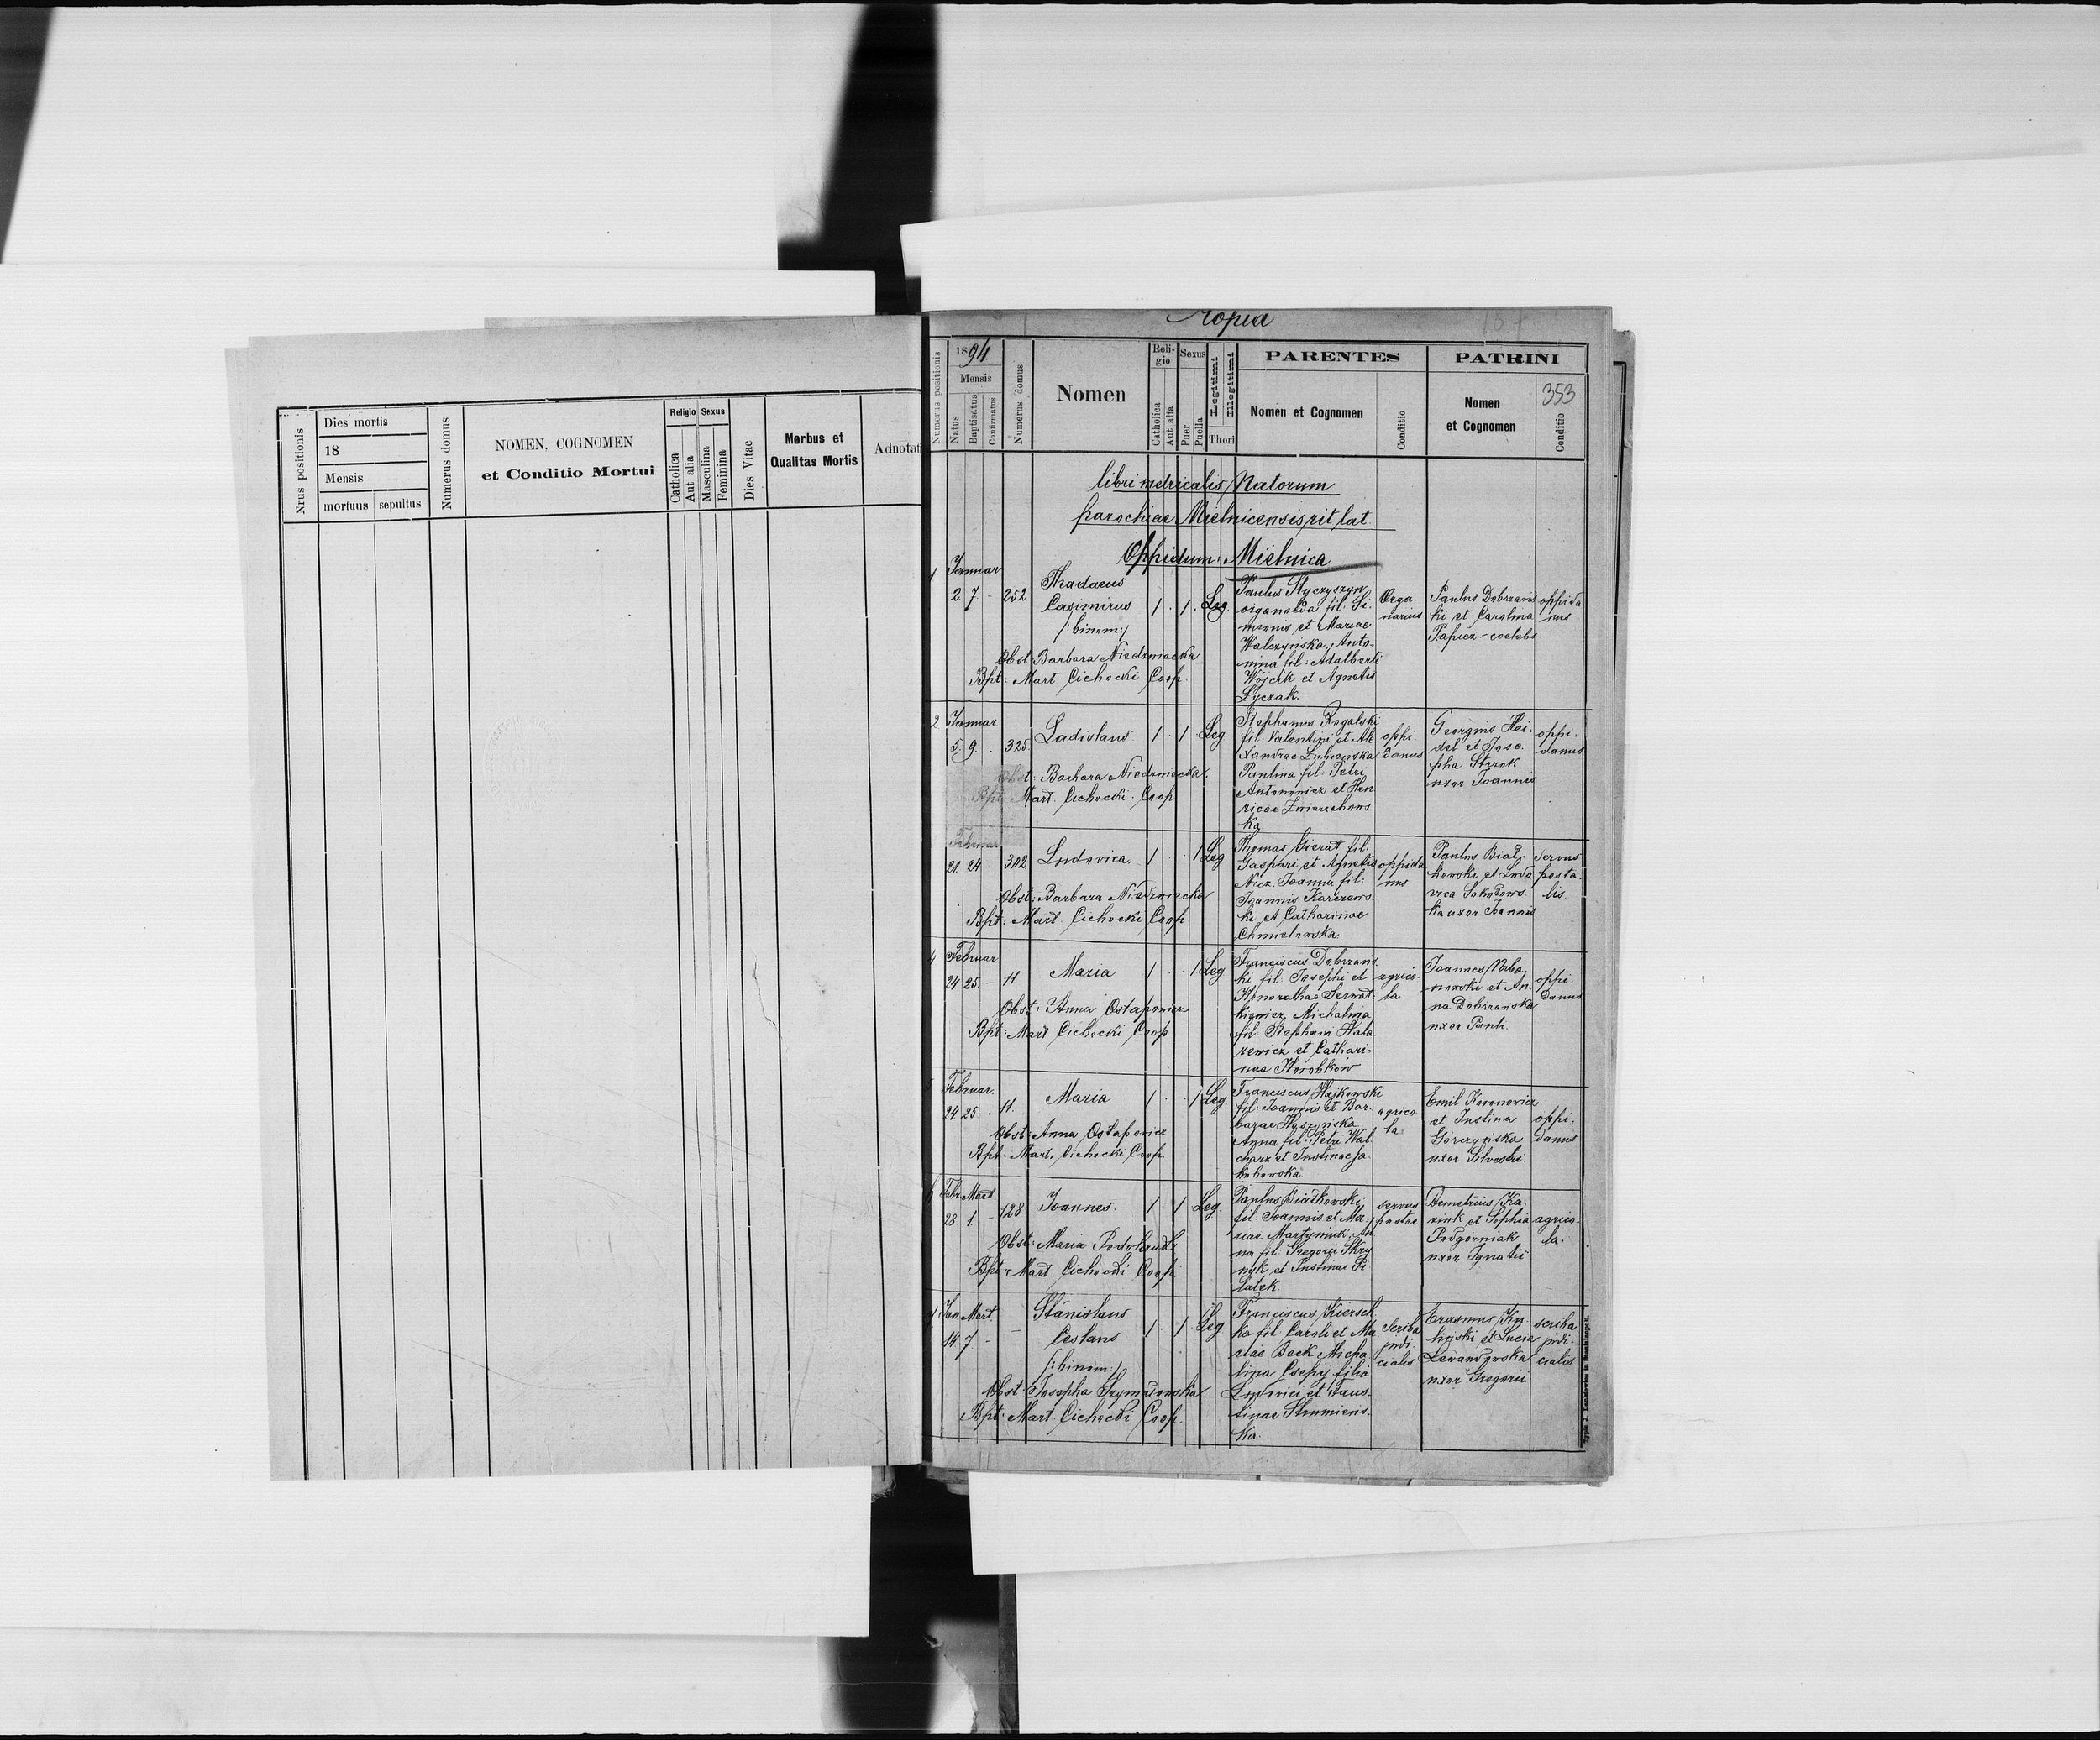 Nrus positionis
Dies mortis
18
Mensis
mortuus sepultus
Numerus domus
NOMEN, COGNOMEN
et Conditio Mortui
Religio Sexus
Catholica
Aut alia
Masculina
Feminina
Dies Vitae
Morbus et
Qualitas Mortis
Adnotati
Kopia
Numerus positionis
1894
Mensis
Natus
Baptisatus
Confirmatus
Numerus domus
Nomen
Religio
Catholica
Aut alia
Sexus
Puer
Puella
Legitimi
Illegitimi
Thori
PARENTES
Nomen et Cognomen
Conditio
PATRINI
Nomen
et Cognomen
353
Conditio
libri metricalis Natorum
parochiae Mielnicensis rit. lat.
Oppidum: Mielnica
1 Januar
2. 7 - 252
Thadaeus
Casimirus
/:binom:/
1 . 1 . Leg.
Obst: Barbara Niedzwiecka
Bpt: Mart. Cichocki Coop.
Paulus Styczyszyn
organoeda fil. Si-
meonis et Mariae
Walczyńska, Anto-
nina fil: Adalberti
Wójcik et Agnetis
Łyczak.
Orga
narius
Paulus Dobrzańs
ki et Carolina
Papiez - coelebs
oppida
nus
2 Januar
5. 9. . 325.
Ladislaus
1 . 1 Leg
Obst: Barbara Niedzwiecka
Bpt: Mart. Cichocki. Coop
Stephanus Rogalski
fil. Valentini et Ale
xandrae
Paulina fil: Petri
Antonowicz et Hen
ricae Zwierzchows
ka.
oppi
danus
Georgius Hei-
del et Jose-
pha Strzok
uxor Joannis
oppi-
danus
Februar
21. 24. 302.
Ludovica.
1 . . 1 Leg
Obst: Barbara Niedzwiecka
Bpt: Mart. Cichocki Coop
Thomas Gierat fil.
Gaspari et Agnetis
Nicz. Joanna fil:
Joannis Karczews-
ki et Catharinae
Chmielowska
oppida
nus
Paulus Biał-
kowski et Ludo
vica Sokołows
ka uxor Joannis
servus
posta
lis.
4 Februar
24 25. - 11
Maria
1 . . 1 Leg
Obst: Anna Ostapowicz
Bpt: Mart Cichocki Coop
Franciscus Dobrzańs
ki fil. Josephi et
Honorathae Serwat-
kiewicz, Michalina
fil. Stephani Hala
rewicz et Cathari-
nae Horobków
agrico-
la
Joannes Urba
nowski et An-
na Dobrzańska
uxor Pauli.
oppi-
danus
5 Februar.
24 25. . 11.
Maria
1 . . 1 Leg
Obst: Anna Ostapowicz
Bpt: Mart. Cichocki Coop.
Franciscus Hajkowski
fil: Joannis et Bar-
barae
Anna fil: Petri Wal
charz et Justinae Ja-
kubowska
agrico
la
Emil Koronowicz
et Justina
Górczyńska
uxor Silvestri.
oppi-
danus
6 Febr. Mart.
28. 1. - 128
Joannes.
1 . 1 Leg.
Obst: Maria
Bpt: Mart. Cichocki Coop
Paulus Białkowski
fil. Joannis et Ma-
riae Martyniuk, An
na fil. Gregorii Skry
nyk et Justinae Pi
latek.
servus
postae
Demetrius Ka-
ziuk et Sophia
Podgórniak
uxor Ignatii
agrico-
la.
7 Jan. Mart.
14. 7 - -
Stanislaus
Ceslaus
/:binom:/
1 . 1 Leg
Obst: Josepha Szymanowska
Bpt: Mart. Cichocki Coop.
Franciscus Kiersch
ka fil. Caroli et Ma
riae Beck Micha
lina Csepij filia
Ludovici et Faus-
tinae Strumiens-
ka.
scriba
judi-
cialis
Erasmus
et Lucia
Lewandowska
uxor Gregorii
scriba
judi-
cialis